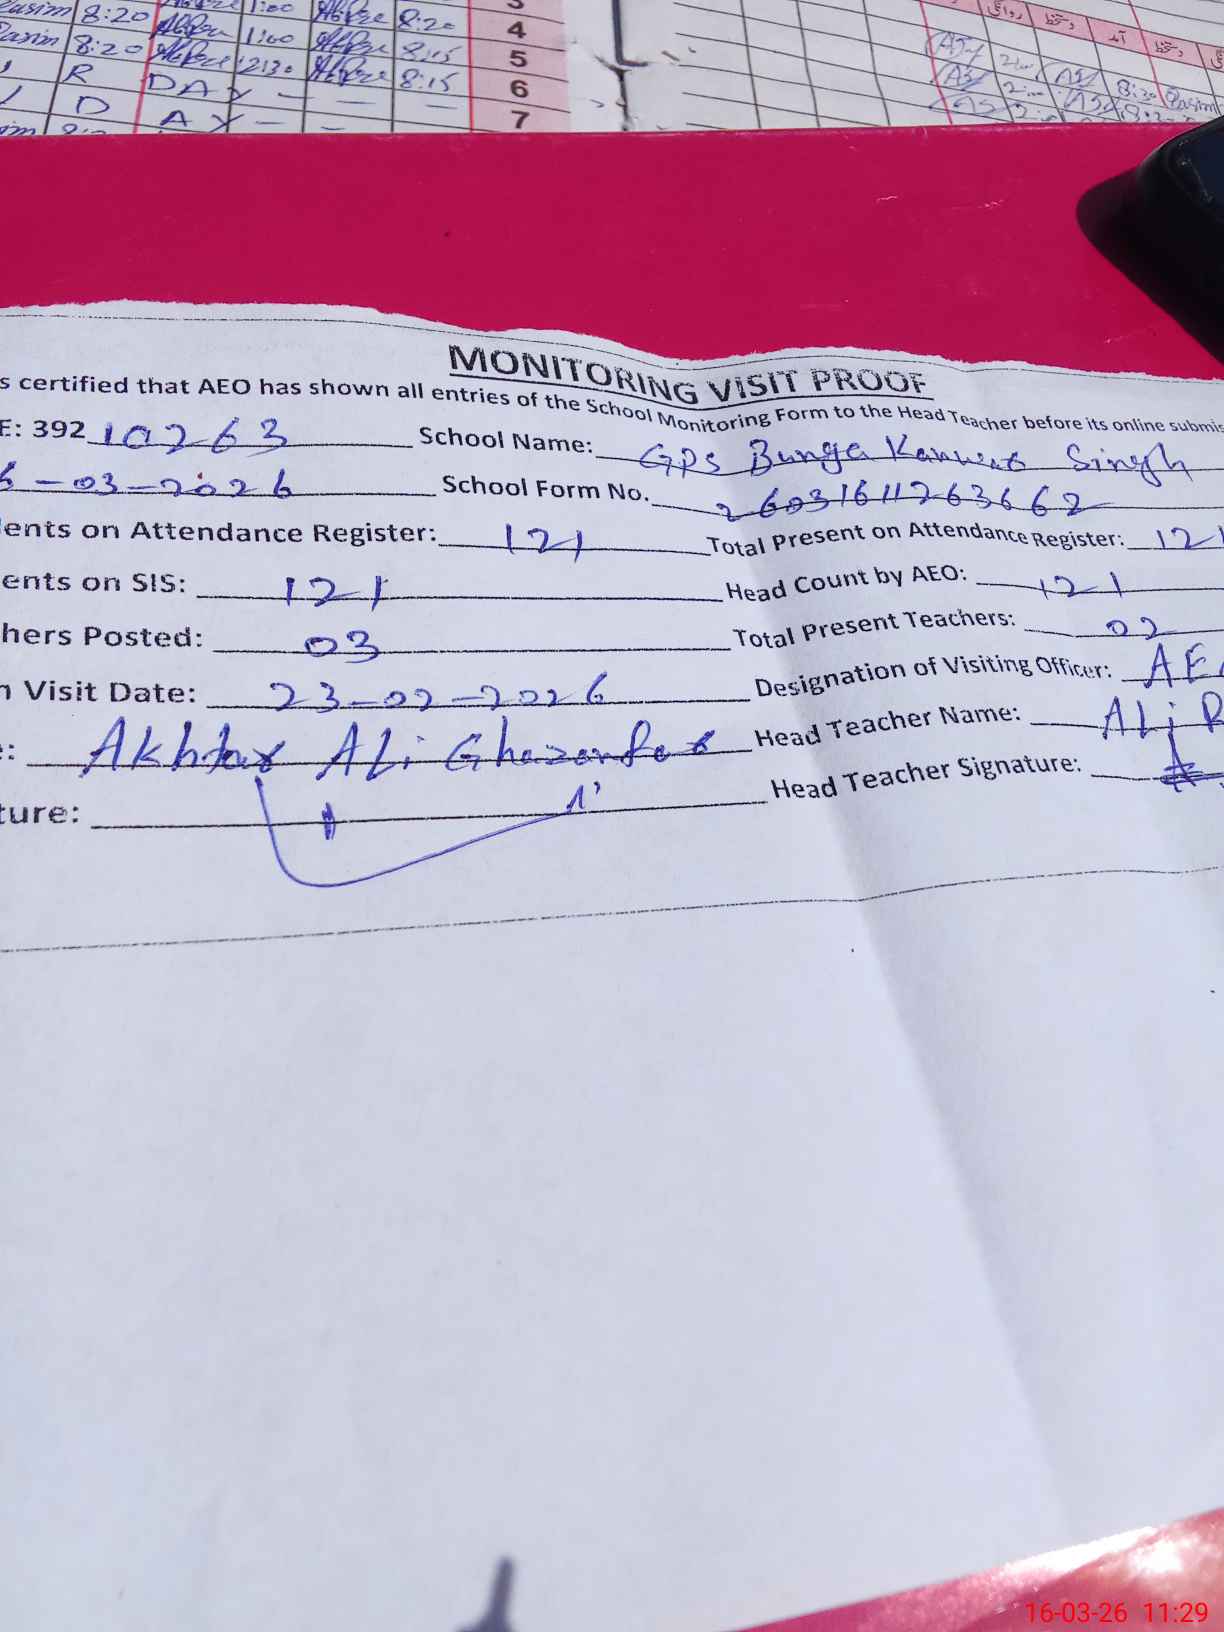 8:20 1:00 8:20 4
8:20 1:00 8:15 5
R DAY - - 8:15 6
D A Y - - - 7
روانگی دستخط آمد دستخط
8:30 Qasim
MONITORING VISIT PROOF
s certified that AEO has shown all entries of the School Monitoring Form to the Head Teacher before its online submis
E: 392 10263 School Name: GPS Bunga Kanwar Singh
6-03-2026 School Form No. 26031611263662
ents on Attendance Register: 121 Total Present on Attendance Register: 121
ents on SIS: 121 Head Count by AEO: 121
hers Posted: 03 Total Present Teachers: 02
n Visit Date: 23-02-2026 Designation of Visiting Officer: AE
e: Akhtar Ali Ghazanfar Head Teacher Name: Ali R
ture: Head Teacher Signature:
16-03-26 11:29